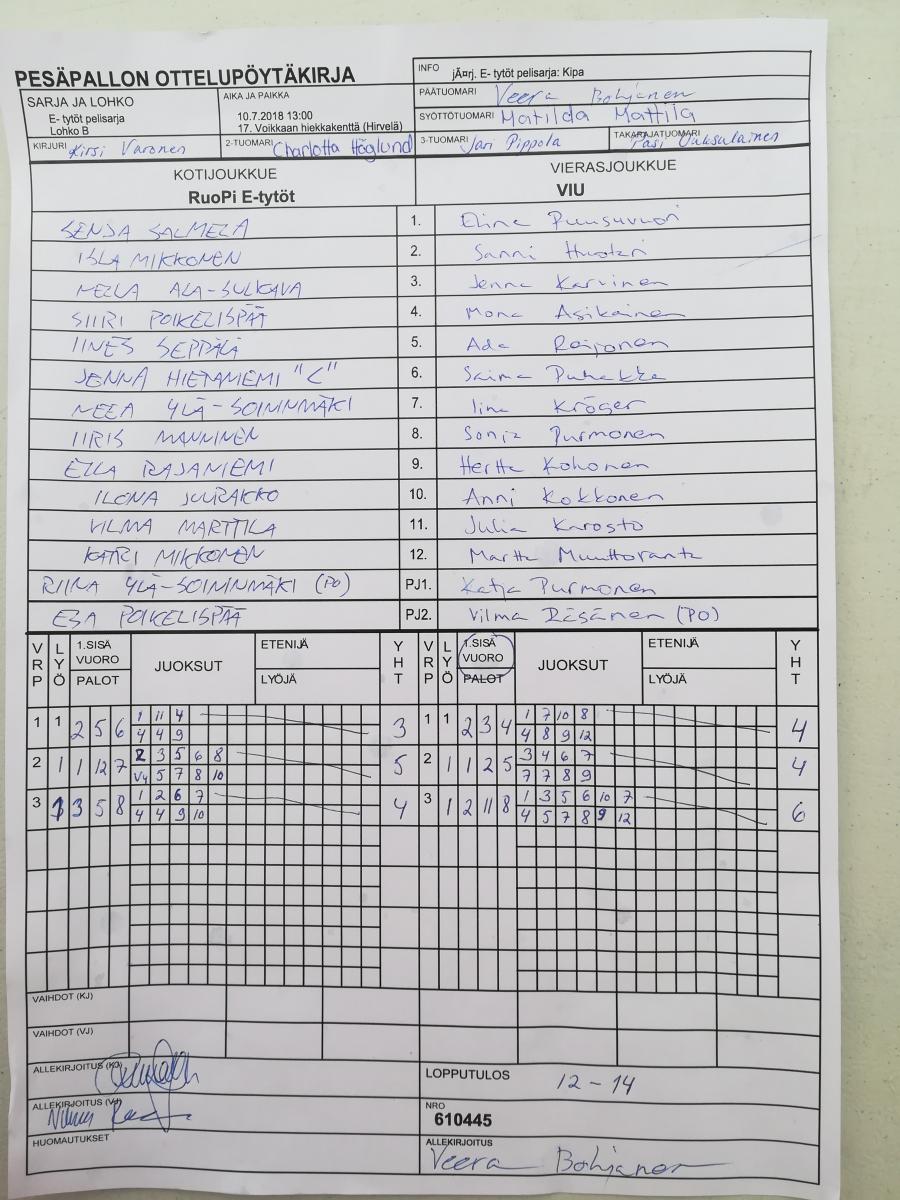 PESÄPALLON OTTELUPÖYTÄKIRJA
INFO jÃ¤rj. E- tytöt pelisarja: Kipa
SARJA JA LOHKO
E- tytöt pelisarja
Lohko B
AIKA JA PAIKKA
10.7.2018 13:00
17. Voikkaan hiekkakenttä (Hirvelä)
PÄÄTUOMARI Veera Bohjanen
SYÖTTÖTUOMARI Matilda Mattila
KIRJURI Kirsi Varonen
2-TUOMARI Charlotta Höglund
3-TUOMARI Jari Pippola
TAKARAJATUOMARI Pasi Uuksulainen
KOTIJOUKKUE
RuoPi E-tytöt
VIERASJOUKKUE
VIU
SENJA SALMELA 1. Elina Puusuvuori
ISLA MIKKONEN 2. Sanni Huotari
NELLA ALA-SULKAVA 3. Jenna Karvinen
SIIRI POIKELISPÄÄ 4. Mona Asikainen
IINES SEPPÄLÄ 5. Ada Reijonen
JENNA HIETANIEMI "C" 6. Saima Puhakka
NEEA YLÄ-SOININMÄKI 7. Iina Kröger
IIRIS MANNINEN 8. Sonja Purmonen
ELLA RAJANIEMI 9. Hertta Kohonen
ILONA JUURAKKO 10. Anni Kokkonen
VILMA MARTTILA 11. Julia Karosto
KATRI MIKKONEN 12. Martta Muuttoranta
RIINA YLÄ-SOININMÄKI (PO) PJ1. Katja Purmonen
ESA POIKELISPÄÄ PJ2. Vilma Räsänen (PO)
VRP LYÖ 1.SISÄ VUORO PALOT JUOKSUT ETENIJÄ LYÖJÄ YHT VRP LYÖ 1.SISÄ VUORO PALOT JUOKSUT ETENIJÄ LYÖJÄ YHT
1 1 2 5 6 1 11 4 3 1 1 2 3 4 1 7 10 8 4
4 4 9 4 8 9 12
2 1 1 12 7 2 3 5 6 8 5 2 1 1 2 5 3 4 6 7 4
V4 5 7 8 10 7 7 8 9
3 1 3 5 8 1 2 6 7 4 3 1 2 11 8 1 3 5 6 10 7 6
4 4 9 10 4 5 7 8 9 12
VAIHDOT (KJ)
VAIHDOT (VJ)
ALLEKIRJOITUS (KJ)
LOPPUTULOS 12-14
ALLEKIRJOITUS (VJ)
NRO
610445
HUOMAUTUKSET
ALLEKIRJOITUS
Veera Bohjanen